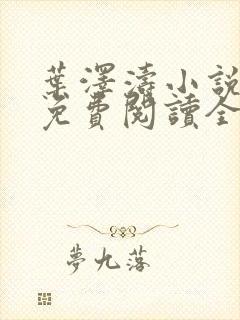 葉澤濤小說
免費閱讀全
夢九落